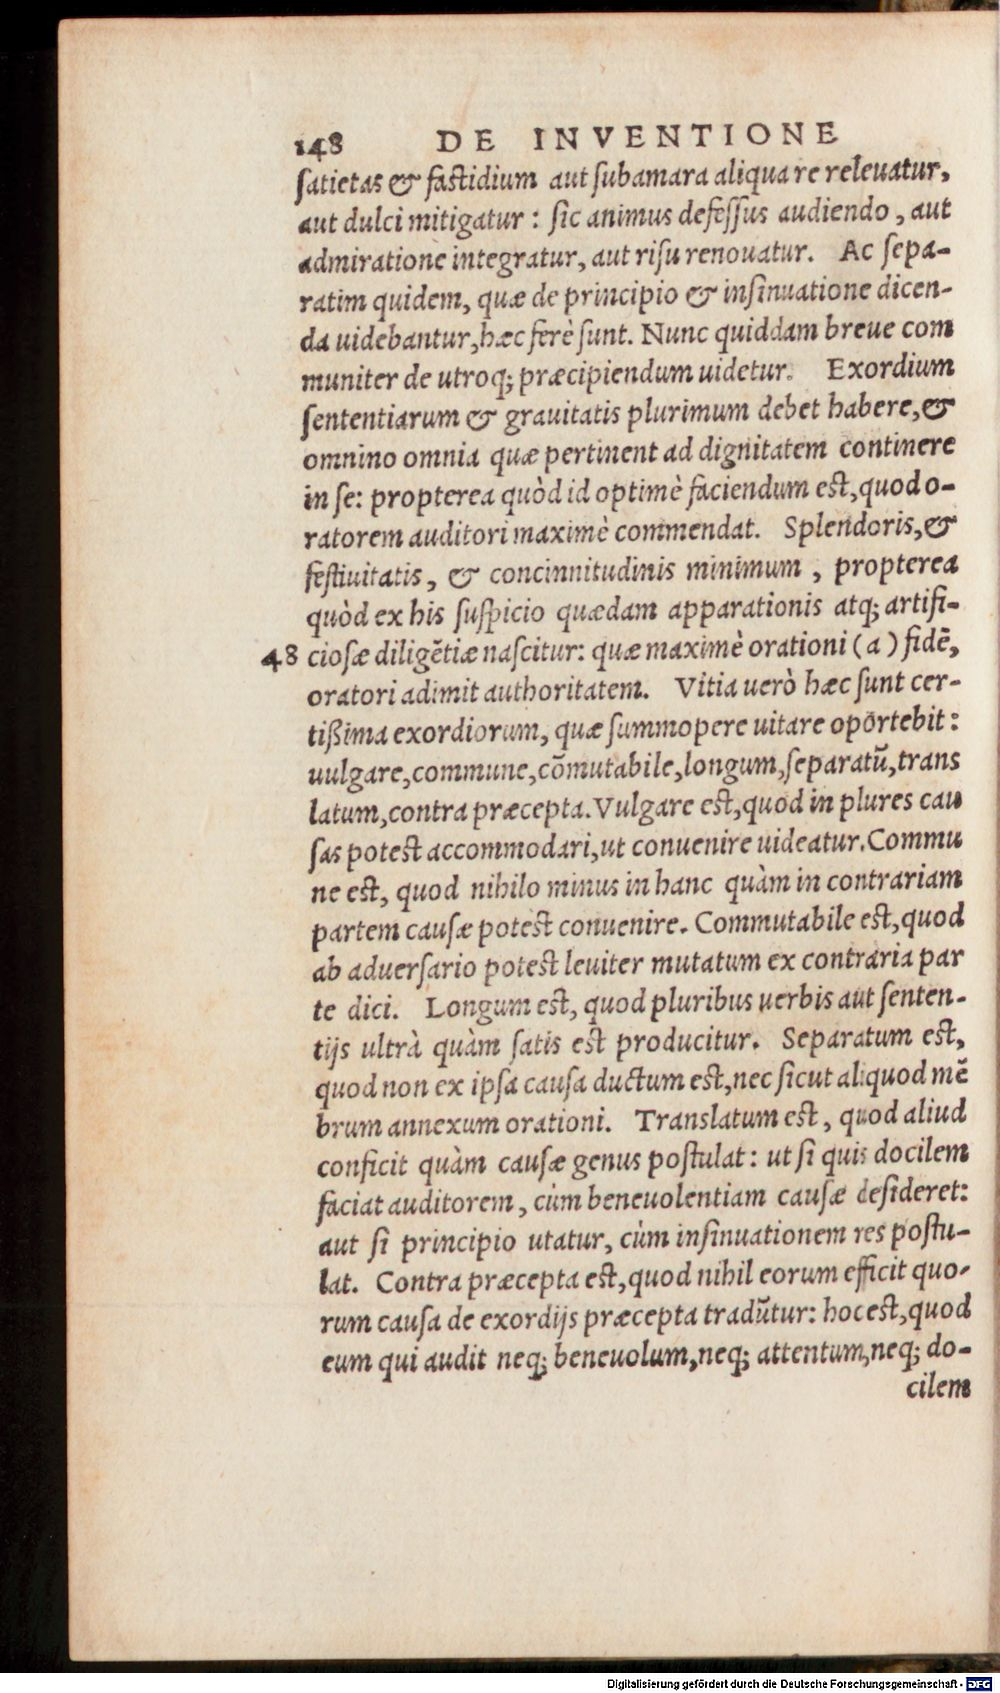 148 DE INVENTIONE
ſatietas & faſtidium aut ſubamara aliqua re releuatur,
aut dulci mitigatur : ſic animus defeſſus audiendo , aut
admiratione integratur, aut riſu renouatur. Ac ſepa-
ratim quidem, quæ de principio & inſinuatione dicen-
da uidebantur, hæc ferè ſunt. Nunc quiddam breue com
muniter de utroq; præcipiendum uidetur. Exordium
ſententiarum & grauitatis plurimum debet habere, &
omnino omnia quæ pertinent ad dignitatem continere
in ſe: propterea quòd id optimè faciendum eſt, quod o-
ratorem auditori maximè commendat. Splendoris, &
feſtiuitatis, & concinnitudinis minimum , propterea
quòd ex his ſuſpicio quædam apparationis atq; artifi-
48 cioſæ diligẽtiæ naſcitur: quæ maximè orationi (a) fidẽ,
oratori adimit authoritatem. Vitia uerò hæc ſunt cer-
tißima exordiorum, quæ ſummopere uitare oportebit :
uulgare, commune, cõmutabile, longum, ſeparatũ, trans
latum, contra præcepta. Vulgare eſt, quod in plures cau
ſas poteſt accommodari, ut conuenire uideatur. Commu
ne eſt, quod nihilo minus in hanc quàm in contrariam
partem cauſæ poteſt conuenire. Commutabile eſt, quod
ab aduerſario poteſt leuiter mutatum ex contraria par
te dici. Longum eſt, quod pluribus uerbis aut ſenten-
tijs ultrà quàm ſatis eſt producitur. Separatum eſt,
quod non ex ipſa cauſa ductum eſt, nec ſicut aliquod mẽ
brum annexum orationi. Translatum eſt, quod aliud
conficit quàm cauſæ genus poſtulat : ut ſi quis docilem
faciat auditorem, cùm beneuolentiam cauſæ deſideret:
aut ſi principio utatur, cùm inſinuationem res poſtu-
lat. Contra præcepta eſt, quod nihil eorum efficit quo-
rum cauſa de exordijs præcepta tradũtur: hoc eſt, quod
eum qui audit neq; beneuolum, neq; attentum, neq; do-
cilem
Digitalisierung gefördert durch die Deutsche Forschungsgemeinschaft - DFG